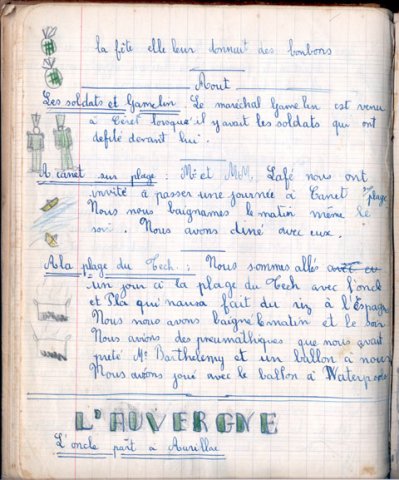 la fête elle leur donnait des bonbons
Aout
Les soldats et Gamelin. Le maréchal Gamelin est venu
à Céret lorsque il y avait les soldats qui ont
defilé devant lui.
A canet sur plage : Mr et Lafé nous ont
invité à passer une journée à Canet sur plage
Nous nous baignames le matin même le
soir. Nous avons diné avec eux.
A la plage du Tech : Nous sommes allés
un jour ci la plage du Tech avec l'oncle
et qui nausa fait du riz à l'Espagn
Nous nous avons baigné lematin et le soir
Nous avions des pneumathiques que nous avait
preté Mr Barthelemy et un ballon à nous
Nous avons joué avec le ballon à Waterpolo
L'AUVERGNE
L'oncle part à Aurillac